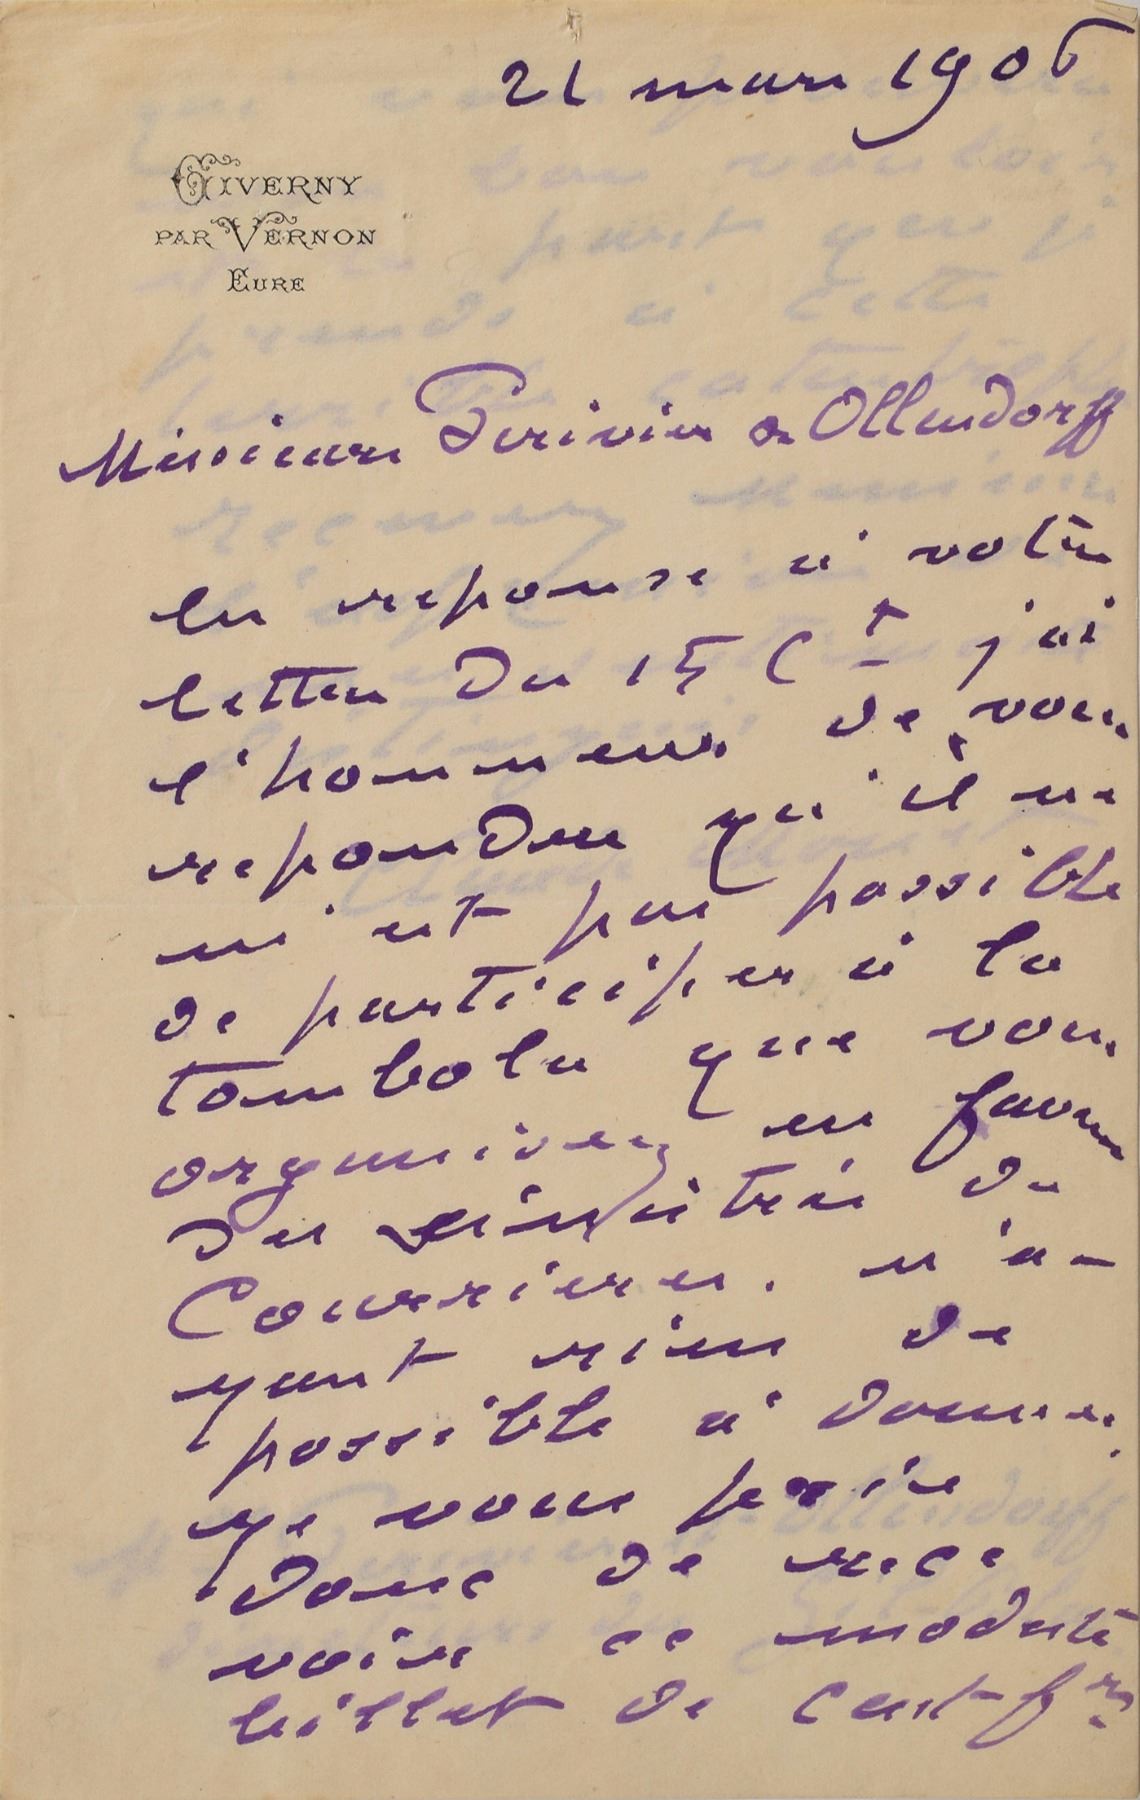 21 mars 1906
GIVERNY
PAR VERNON
EURE
Messieurs Perivier & Ollendorff
En reponse à votre
lettre du 15 Ct j'ai
l'honneur de vous
repondre qu'il ne
m'est pas possible
de participer à la
tombola que vous
organisez en faveur
des sinistrés de
Courrieres. n'a-
yant rien de
possible à donner
je vous prie
donc de rece
voir ce modeste
billet de cent frs